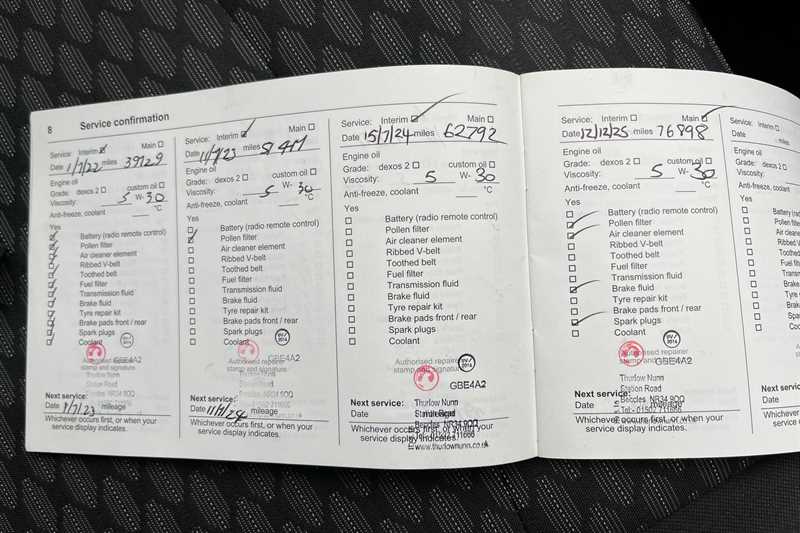 8 Service confirmation
Service: Interim Main
Date 1/7/22 miles 39729
Engine oil
Grade: dexos 2 custom oil
Viscosity: 5 W- 30
Anti-freeze, coolant °C
Yes
Battery (radio remote control)
Pollen filter
Air cleaner element
Ribbed V-belt
Toothed belt
Fuel filter
Transmission fluid
Brake fluid
Tyre repair kit
Brake pads front / rear
Spark plugs
Coolant
Authorised repairer
stamp and signature
GBE4A2
Thurlow Nunn
Station Road
Beccles NR34 9QQ
Next service:
Date 1/7/23 mileage
Whichever occurs first, or when your
service display indicates.
Service: Interim Main
Date 11/7/23 miles
Engine oil
Grade: dexos 2 custom oil
Viscosity: 5 W- 30
Anti-freeze, coolant °C
Yes
Battery (radio remote control)
Pollen filter
Air cleaner element
Ribbed V-belt
Toothed belt
Fuel filter
Transmission fluid
Brake fluid
Tyre repair kit
Brake pads front / rear
Spark plugs
Coolant
Authorised repairer
stamp and signature
GBE4A2
Station Road
Beccles NR34 9QQ
Tel - 01502 711666
Next service:
Date mileage
Whichever occurs first, or when your
service display indicates.
Service: Interim Main
Date 15/7/24 miles 62792
Engine oil
Grade: dexos 2 custom oil
Viscosity: 5 W- 30
Anti-freeze, coolant °C
Yes
Battery (radio remote control)
Pollen filter
Air cleaner element
Ribbed V-belt
Toothed belt
Fuel filter
Transmission fluid
Brake fluid
Tyre repair kit
Brake pads front / rear
Spark plugs
Coolant
Authorised repairer
stamp and signature
GBE4A2
Thurlow Nunn
Next service:
Station Road
Date mileage
Beccles NR34 9QQ
Whichever occurs first, or when your
Tel - 01502 711666
service display indicates.
www.thurlownunn.co.uk
Service: Interim Main
Date 12/12/25 miles 76898
Engine oil
Grade: dexos 2 custom oil
Viscosity: 5 W- 30
Anti-freeze, coolant °C
Yes
Battery (radio remote control)
Pollen filter
Air cleaner element
Ribbed V-belt
Toothed belt
Fuel filter
Transmission fluid
Brake fluid
Tyre repair kit
Brake pads front / rear
Spark plugs
Coolant
Authorised repairer
stamp and
GBE4A2
Thurlow Nunn
Station Road
Next service:
Beccles NR34 9QQ
Date mileage
Tel - 01502 711666
Whichever occurs first, or when your
service display indicates.
Service: Interim
Date
Engine oil
Grade: dexos 2
Viscosity:
Anti-freeze, coolant
Yes
Battery (radio remote
Pollen filter
Air cleaner element
Ribbed V-belt
Toothed belt
Fuel filter
Transmission
Brake fluid
Tyre repair
Brake pads
Spark plugs
Coolant
Next service:
Date
Whichever
service